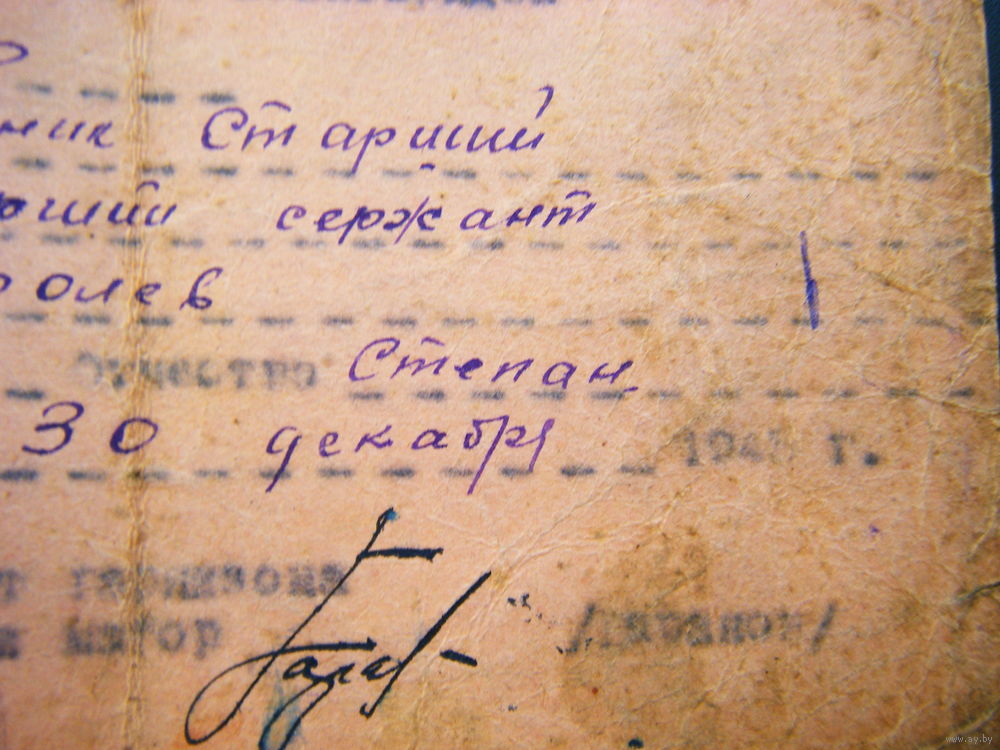 ник Старший
сержант
ролев
Отчество Степан
30 декабря 194 г.
т гарнизона
майор
www.ay.by